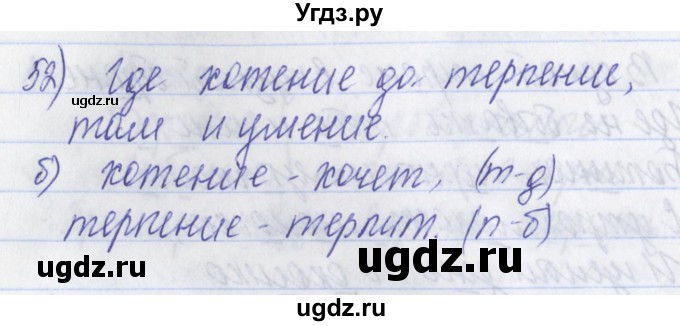 Угдз.ру
52) Где хотение до терпение,
ugdz.ru
там и умение.
б) хотение - хочет, (т-д)
терпение - терпит. (п-б)
ugdz.ru ugdz.ru
ugdz.ru